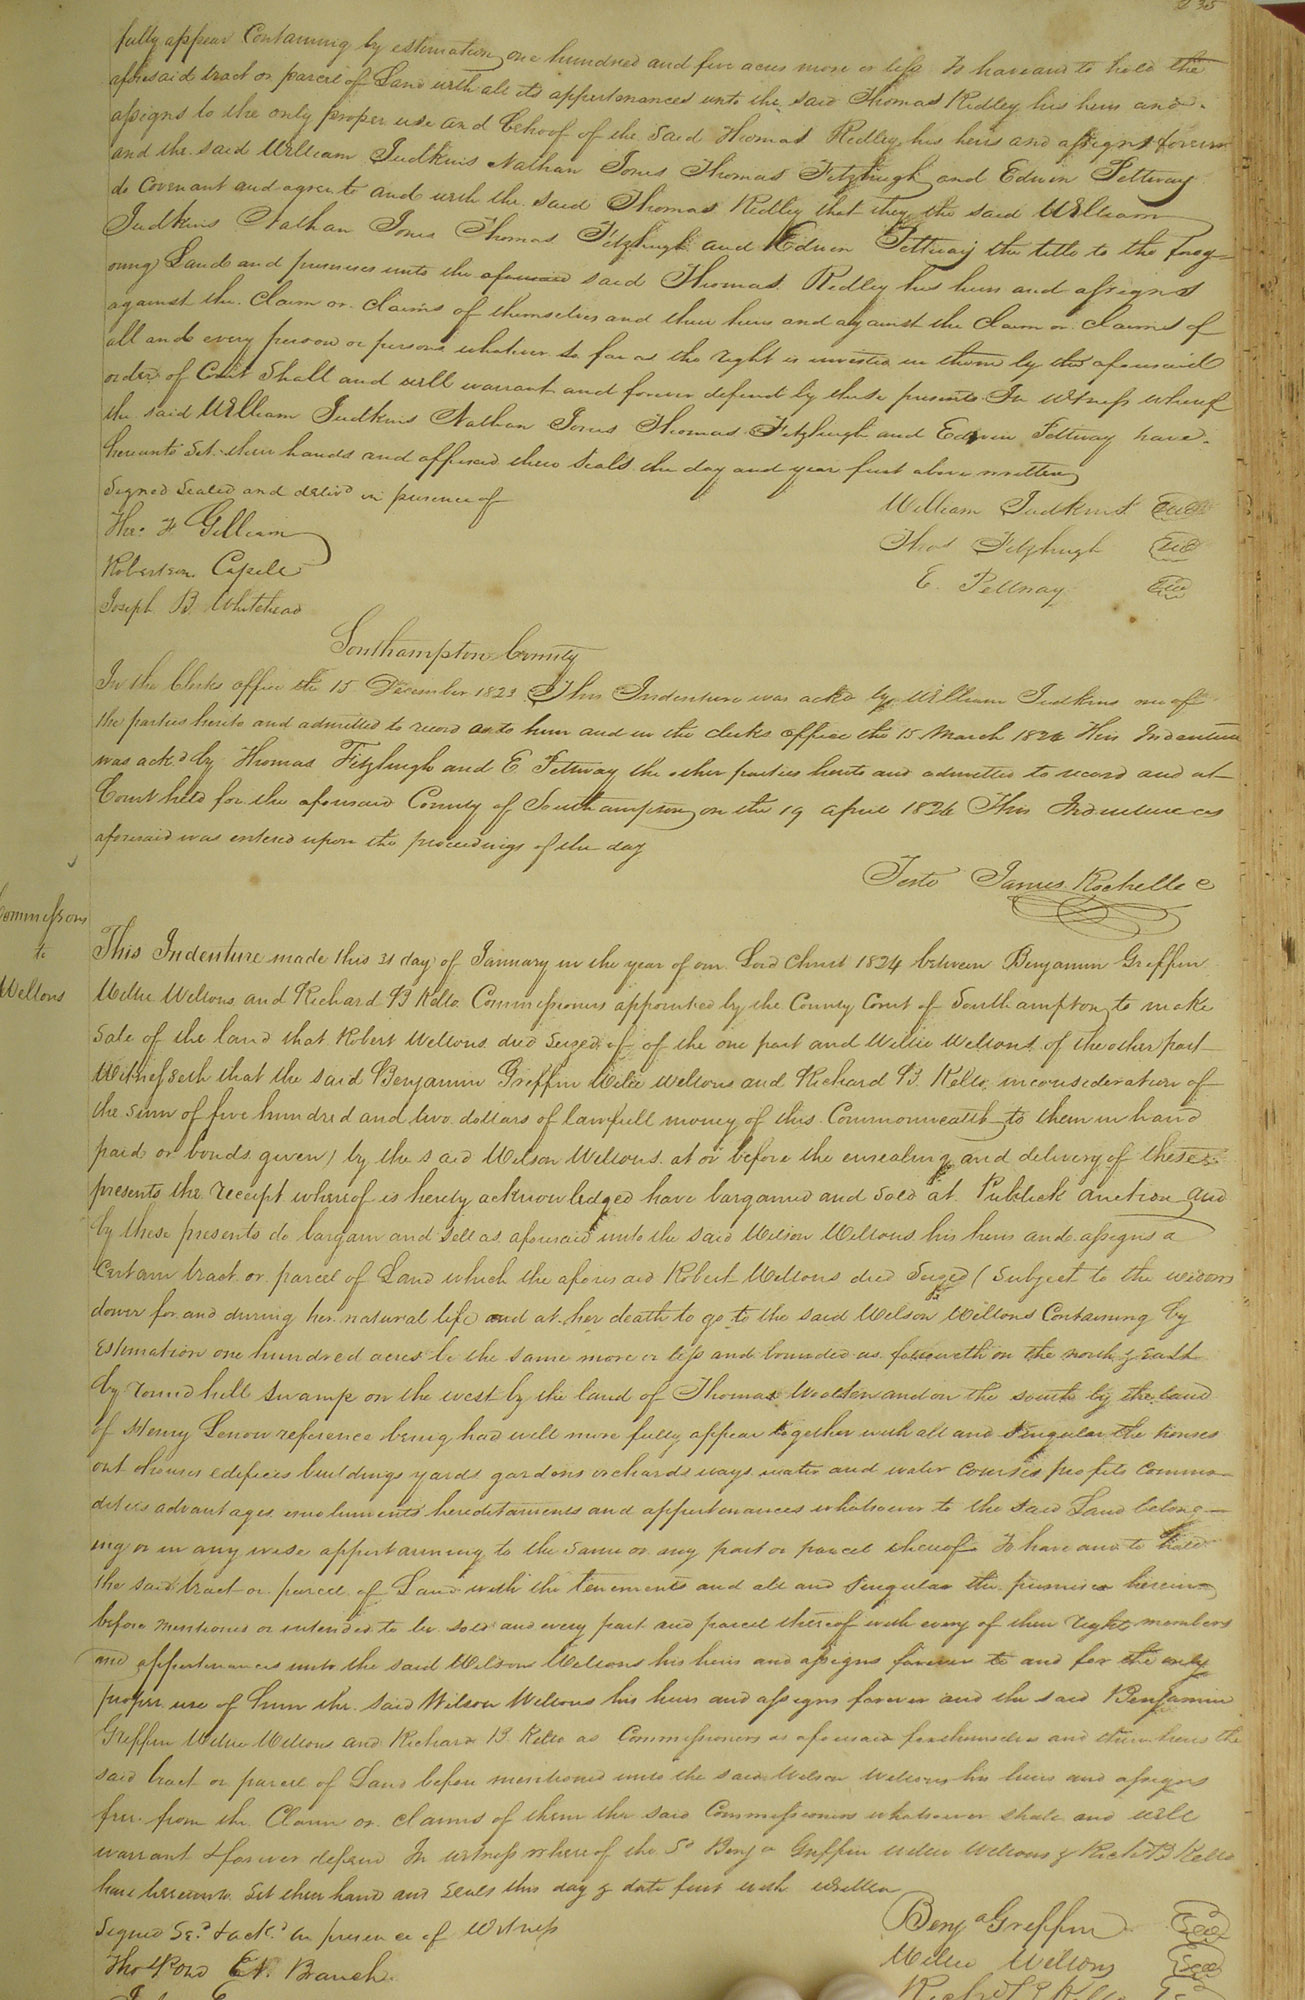 235
fully appear Containing by estimation one hundred and five acres more or less To have and to hold the
aforesaid tract or parcel of Land with all its appertenances unto the said Thomas Ridley his heirs and
assigns to the only proper use and behoof of the said Thomas Ridley his heirs and assigns forever
and the said William Judkins Nathan Jones Thomas Fitzhugh and Edwin Pettway
do Covenant and agree to and with the said Thomas Ridley that they the said William
Judkins Nathan Jones Thomas Fitzhugh and Edwin Pettway the title to the foreg-
oing Land and premises unto the aforesaid said Thomas Ridley his heirs and assigns
against the claim or claims of themselves and their heirs and against the claim or claims of
all and every person or persons whatever so far as the right is invested in them by the aforesaid
order of Court Shall and will warrant and forever defend by these presents In witness whereof
the said William Judkins Nathan Jones Thomas Fitzhugh and Edwin Pettway have
hereunto Set their hands and affixed their Seals the day and year first above written
Signed Sealed and delivd in presence of
William Judkins Seal
Tho. H Gilliam
Thos Fitzhugh Seal
Robertson Capell
E. Pettway Seal
Joseph B. Whitehead
Southampton County
In the Clerks office the 15 December 1823 This Indenture was ackd by William Judkins one of
the parties hereto and admitted to record as to him and in the clerks office the 15 March 1824 This Indenture
was ackd by Thomas Fitzhugh and E Pettway the other parties hereto and admitted to record and at
Court held for the aforesaid County of Southampton on the 19 april 1824 This Indenture as
aforesaid was entered upon the proceedings of the day
Teste James Rochelle c
Commissors
to
Wellons
This Indenture made this 31 day of January in the year of our Lord Christ 1824 between Benjamin Griffin
Willie Wellons and Richard B Kello Commissioners appointed by the County Court of Southampton to make
Sale of the land that Robert Wellons died Seized of of the one part and Willie Wellons of the other part
Witnesseth that the said Benjamin Griffin Willie Wellons and Richard B. Kello, in consideration of
the sum of five hundred and two dollars of lawfull money of this Commonwealth to them in hand
paid or bonds given) by the said Wilson Wellons at or before the ensealing and delivery of these
presents the receipt whereof is hereby acknowledged have bargained and Sold at Publick auction and
by these presents do bargain and sell as aforesaid unto the said Wilson Wellons his heirs and assigns a
Certain tract or parcel of Land which the aforesaid Robert Wellons died Seized (Subject to the widows
dower for and during her natural life and at her death to go to the said Wilson Wellons Containing by
Estimation one hundred acres be the same more or less and bounded as followeth on the north & East
by round hill Swamp on the west by the land of Thomas and on the south by the land
of Henry Lenow reference being had will more fully appear together with all and Singular the houses
out houses edifices buildings yards gardens orchards ways water and water courses profits commo-
dities advantages emoluments hereditaments and appertenances whatsoever to the said Land belong-
ing or in any wise appertaining to the same or any part or parcel thereof To have and to hold
the said tract or parcel of Land with the tenements and all and Singular the premises herein
before mentioned or intended to be sold and every part and parcel thereof with every of their right members
and appertenances unto the said Wilson Wellons his heirs and assigns forever to and for the only
proper use of him the said Wilson Wellons his heirs and assigns forever and the said Benjamin
Griffin Willie Wellons and Richard B. Kello as Commissioners as aforesaid for themselves and their heirs the
said tract or parcel of Land before mentioned unto the said Wilson Wellons his heirs and assigns
free from the Claim or claims of them the said Commissioners whatsoever shall and will
warrant & forever defend In witness whereof the Sd Benja Griffin Willie Wellons & Richd B Kello
have hereunto Set their hand and Seals this day & date first with written
Signed Sd. & ackd. in presence of Witness
Benja Griffin Seal
Tho Pond E. Branch
Willie Wellons Seal
Richd B Kello